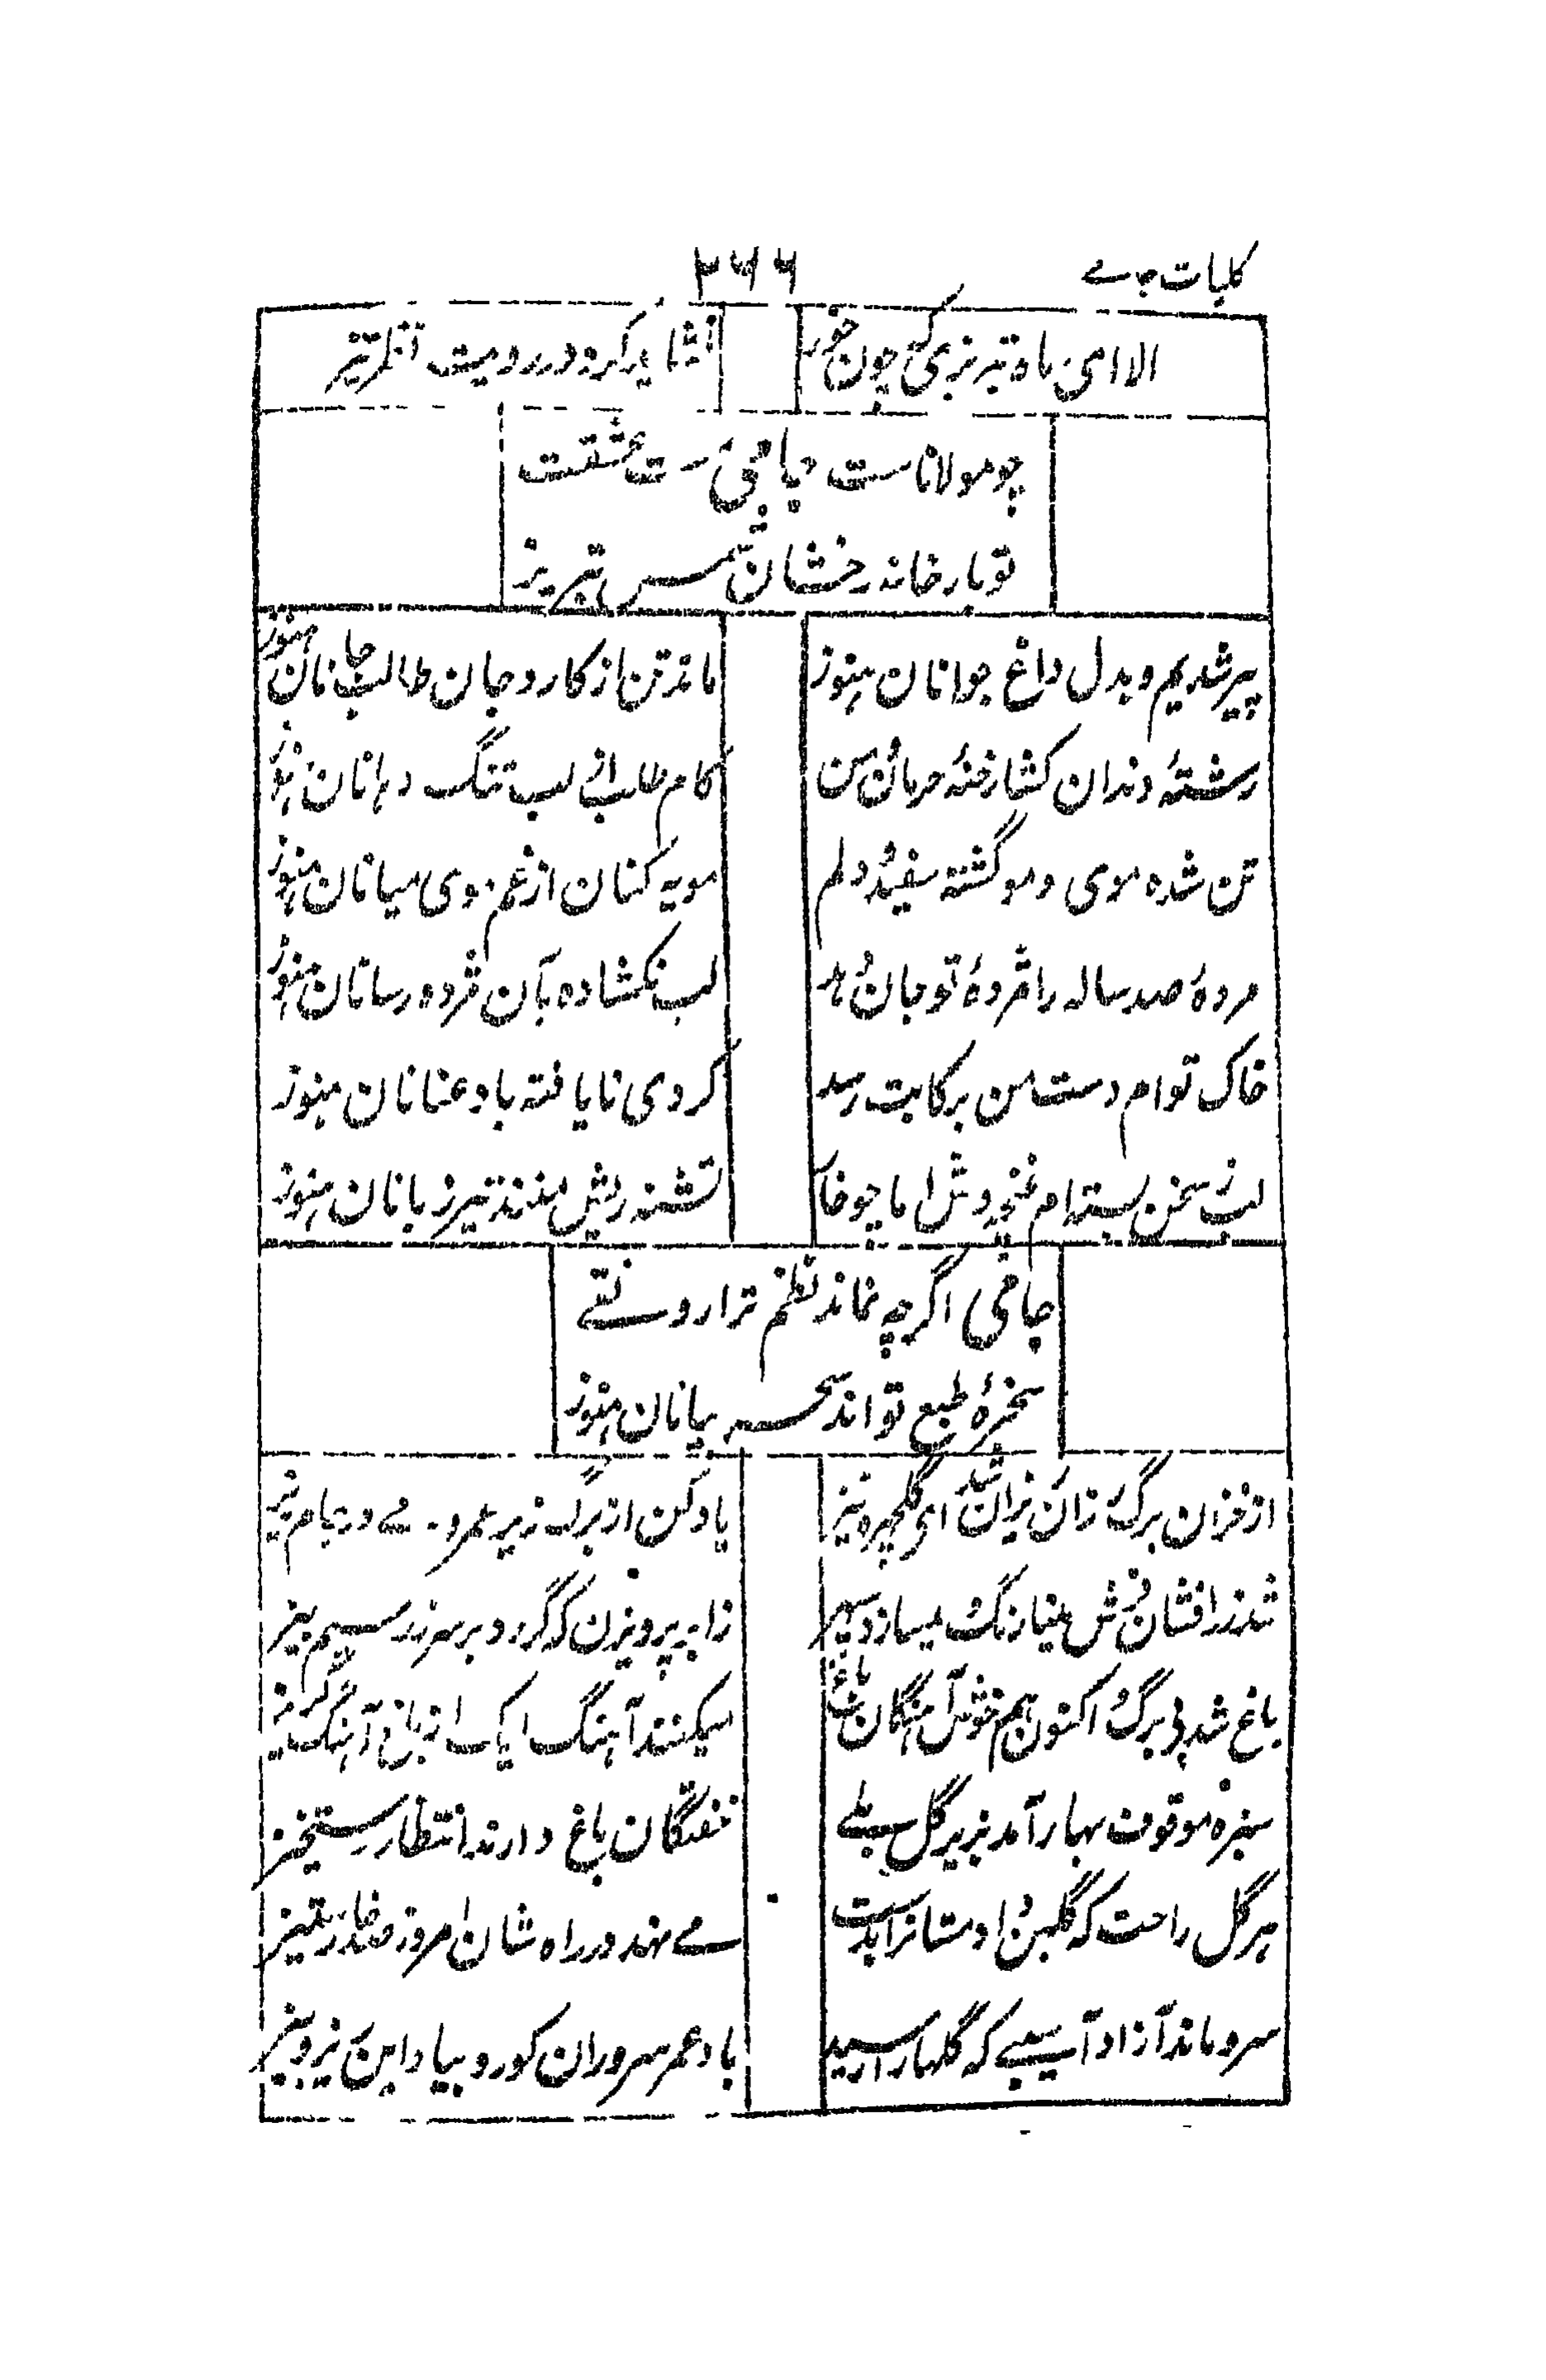 کلیات جامے
۲۶۶
الا ای ماه تبریزی که چون خور
نشاید کرد در رویت نظر تیز
چو مولاناست جامی مست عشقت
تو با رخانه رخشان شمس تبریز
پیر شدیم و بدل داغ جوانان هنوز
ماند تن از کار و جان طالب جانان هنوز
رشتهٔ دندان کشا رخنهٔ حرمان من
کام طلب از لب تنگ دهانان هنوز
تن شده موی و مو گشته سفید و دلم
مویه کنان از غم موی میانان هنوز
مردهٔ صد ساله را مژدهٔ تو جان دهد
لب نکشاده بآن مژده رسانان هنوز
خاک توام دست من برکابت رسد
گردی نایافته باد عنانان هنوز
لب ز سخن بسته‌ام غنچه وش اما چو خار
تشنه ریش منند تیز زبانان هنوز
جامی اگرچه نماند نظم ترا رونقے
سخرهٔ طبع تو اند سحر بیانان هنوز
از خزان برگ رزان ریزان شد ای گلچهره نیز
یاد کن از برگ ریز عمر و مے در جام ریز
شد زر افشان فرش مینا رنگ میسازد سپهر
ز ابر پرویزن که گردد بر سر زر سیم بیز
باغ شد بی برگ اکنون هم خوش آهنگان باغ
میکنند آهنگ ایک از باغ و آهنگ گریز
سبزه موقوف بهار آمد بزیر گل بلے
خفتگان باغ دارند انتظار رستخیز
هر گل راحت که گلبن داد مستانرا بدست
مے نهد در راه شان امروز خار تیز
سرو ماند آزاد آسیبے که گلها را رسید
باد عمر سروران کو رو بیاد این نیز و نیز